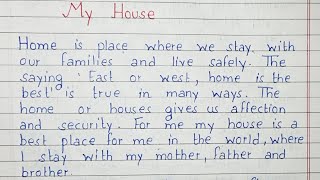 My House
Home is place where we stay with
our families and live safely. The
saying 'East or west, home is the
best' is true in many ways. The
home or houses gives us affection
and security. For me my house is a
best place for me in the world, where
I stay with my mother, father and
brother.